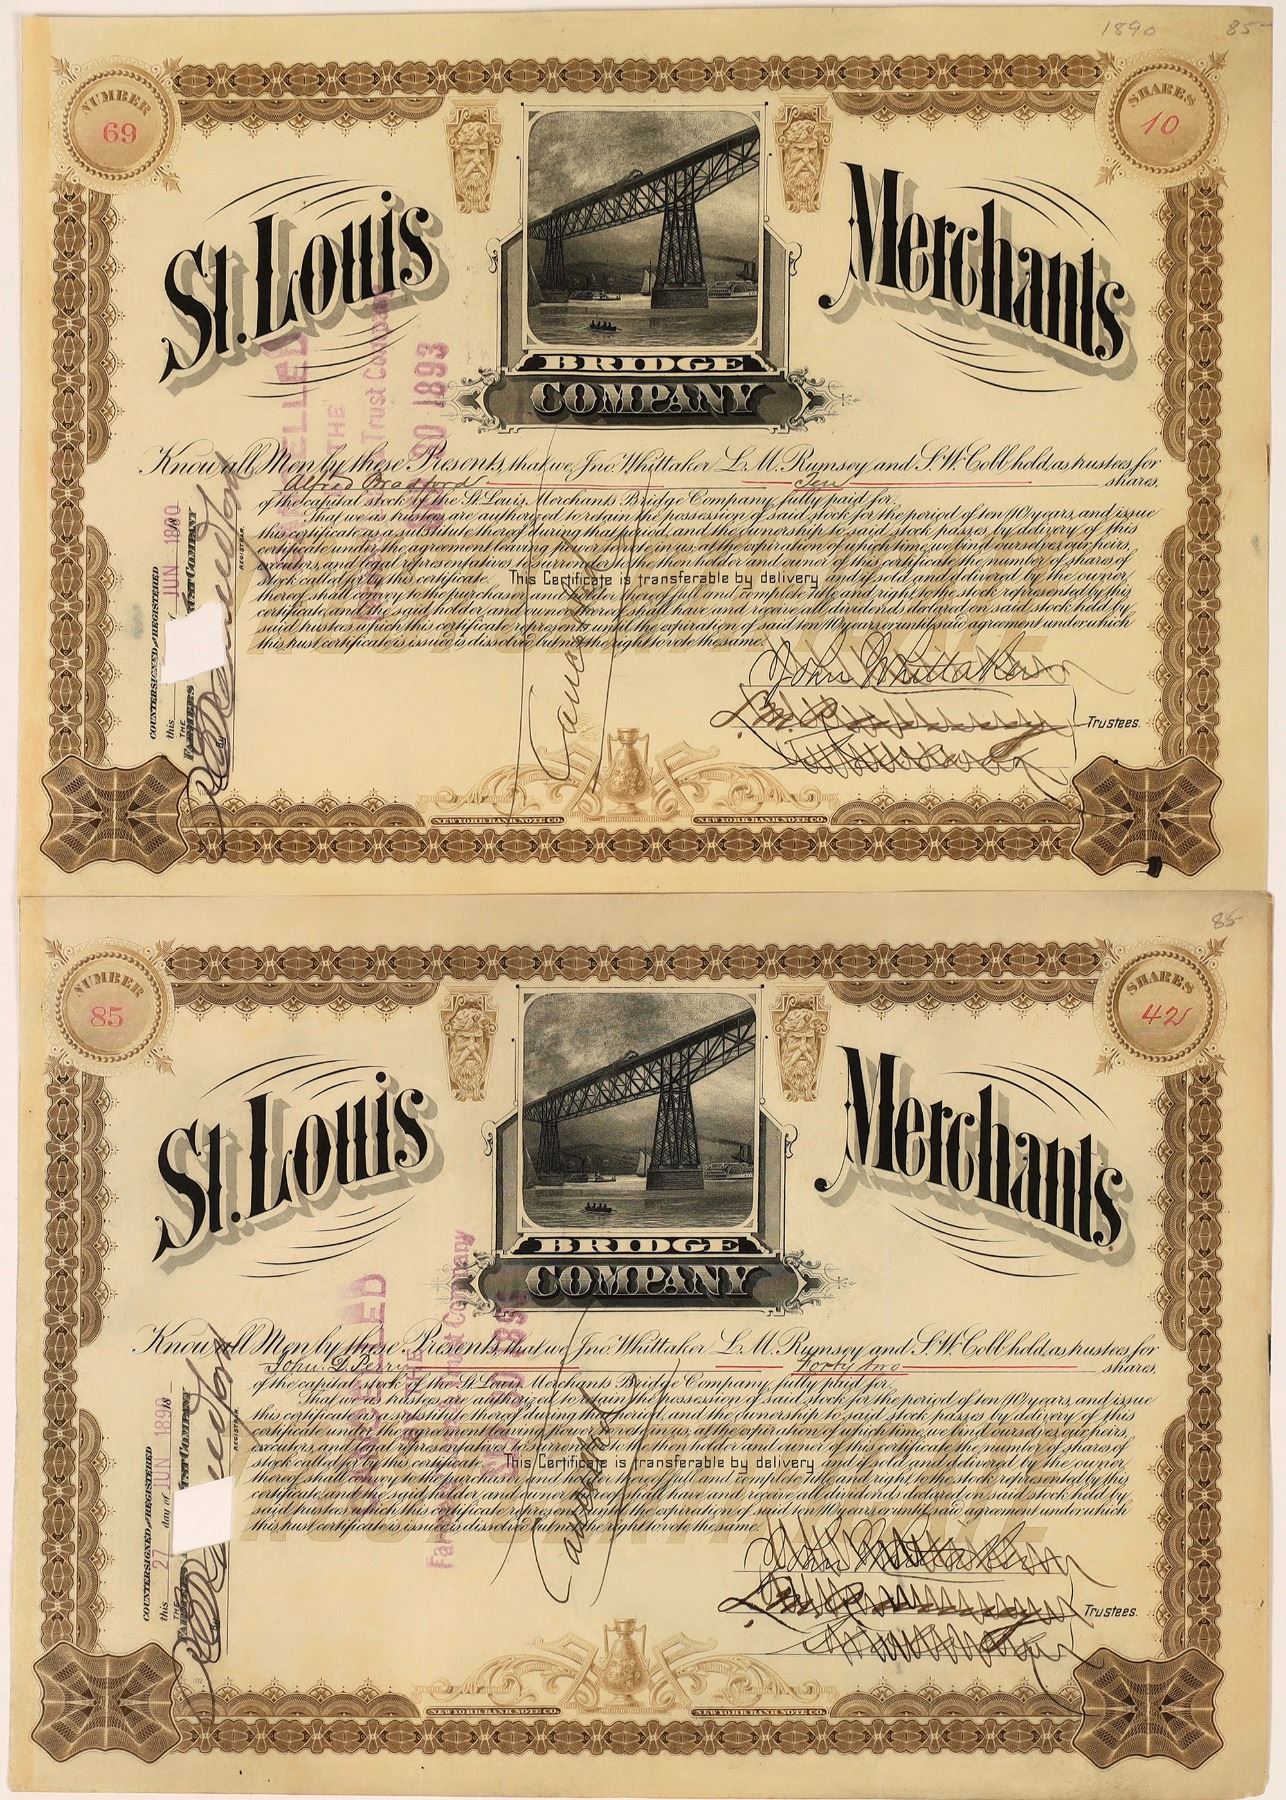 1890 85-
NUMBER
69
SHARES
10
St. Louis Merchants
BRIDGE
COMPANY
Know all Men by these Presents, that we Jno. Whittaker L. M. Rumsey and S. W. Cobb hold, as trustees, for
Alfred Bradford Ten shares,
of the capital stock of the St. Louis Merchants Bridge Company, fully paid for.
That we as trustees are authorized to retain the possession of said stock for the period of ten (10) years, and issue
this certificate as a substitute thereof during that period, and the ownership to said stock passes by delivery of this
certificate under the agreement leaving power to vote in us; at the expiration of which time, we bind ourselves, our heirs,
executors, and legal representatives to surrender to the then holder and owner of this certificate the number of shares of
stock called for by this certificate. This Certificate is transferable by delivery and if sold and delivered by the owner,
thereof shall convey to the purchaser and holder thereof full and complete title and right to the stock represented by this
certificate, and the said holder and owner thereof shall have and receive all dividends declared on said stock held by
said trustees which this certificate represents until the expiration of said ten (10) years, or until said agreement under which
this trust certificate is issued is dissolved but not the right to vote the same.
John Whittaker
L. M. Rumsey
Trustees.
COUNTERSIGNED AND REGISTERED
this JUN 1890
THE FARMERS TRUST COMPANY
BY
REGISTRAR.
THE
Trust Company
30 1893
Cancelled
NEW YORK BANK NOTE CO. NEW YORK BANK NOTE CO.
85
NUMBER
85
SHARES
42
St. Louis Merchants
BRIDGE
COMPANY
Know all Men by these Presents, that we Jno. Whittaker L. M. Rumsey and S. W. Cobb hold, as trustees, for
John D. Perry Forty two shares,
of the capital stock of the St. Louis Merchants Bridge Company, fully paid for.
That we as trustees are authorized to retain the possession of said stock for the period of ten (10) years, and issue
this certificate as a substitute thereof during that period, and the ownership to said stock passes by delivery of this
certificate under the agreement leaving power to vote in us; at the expiration of which time, we bind ourselves, our heirs,
executors, and legal representatives to surrender to the then holder and owner of this certificate the number of shares of
stock called for by this certificate. This Certificate is transferable by delivery and if sold and delivered by the owner,
thereof shall convey to the purchaser and holder thereof full and complete title and right to the stock represented by this
certificate, and the said holder and owner thereof shall have and receive all dividends declared on said stock held by
said trustees which this certificate represents until the expiration of said ten (10) years, or until said agreement under which
this trust certificate is issued is dissolved but not the right to vote the same.
John Whittaker
L. M. Rumsey
Trustees.
COUNTERSIGNED AND REGISTERED
this 27 day of JUN 1890
THE
TRUST COMPANY
BY
REGISTRAR.
CANCELLED
THE
Trust Company
Cancelled
NEW YORK BANK NOTE CO. NEW YORK BANK NOTE CO.